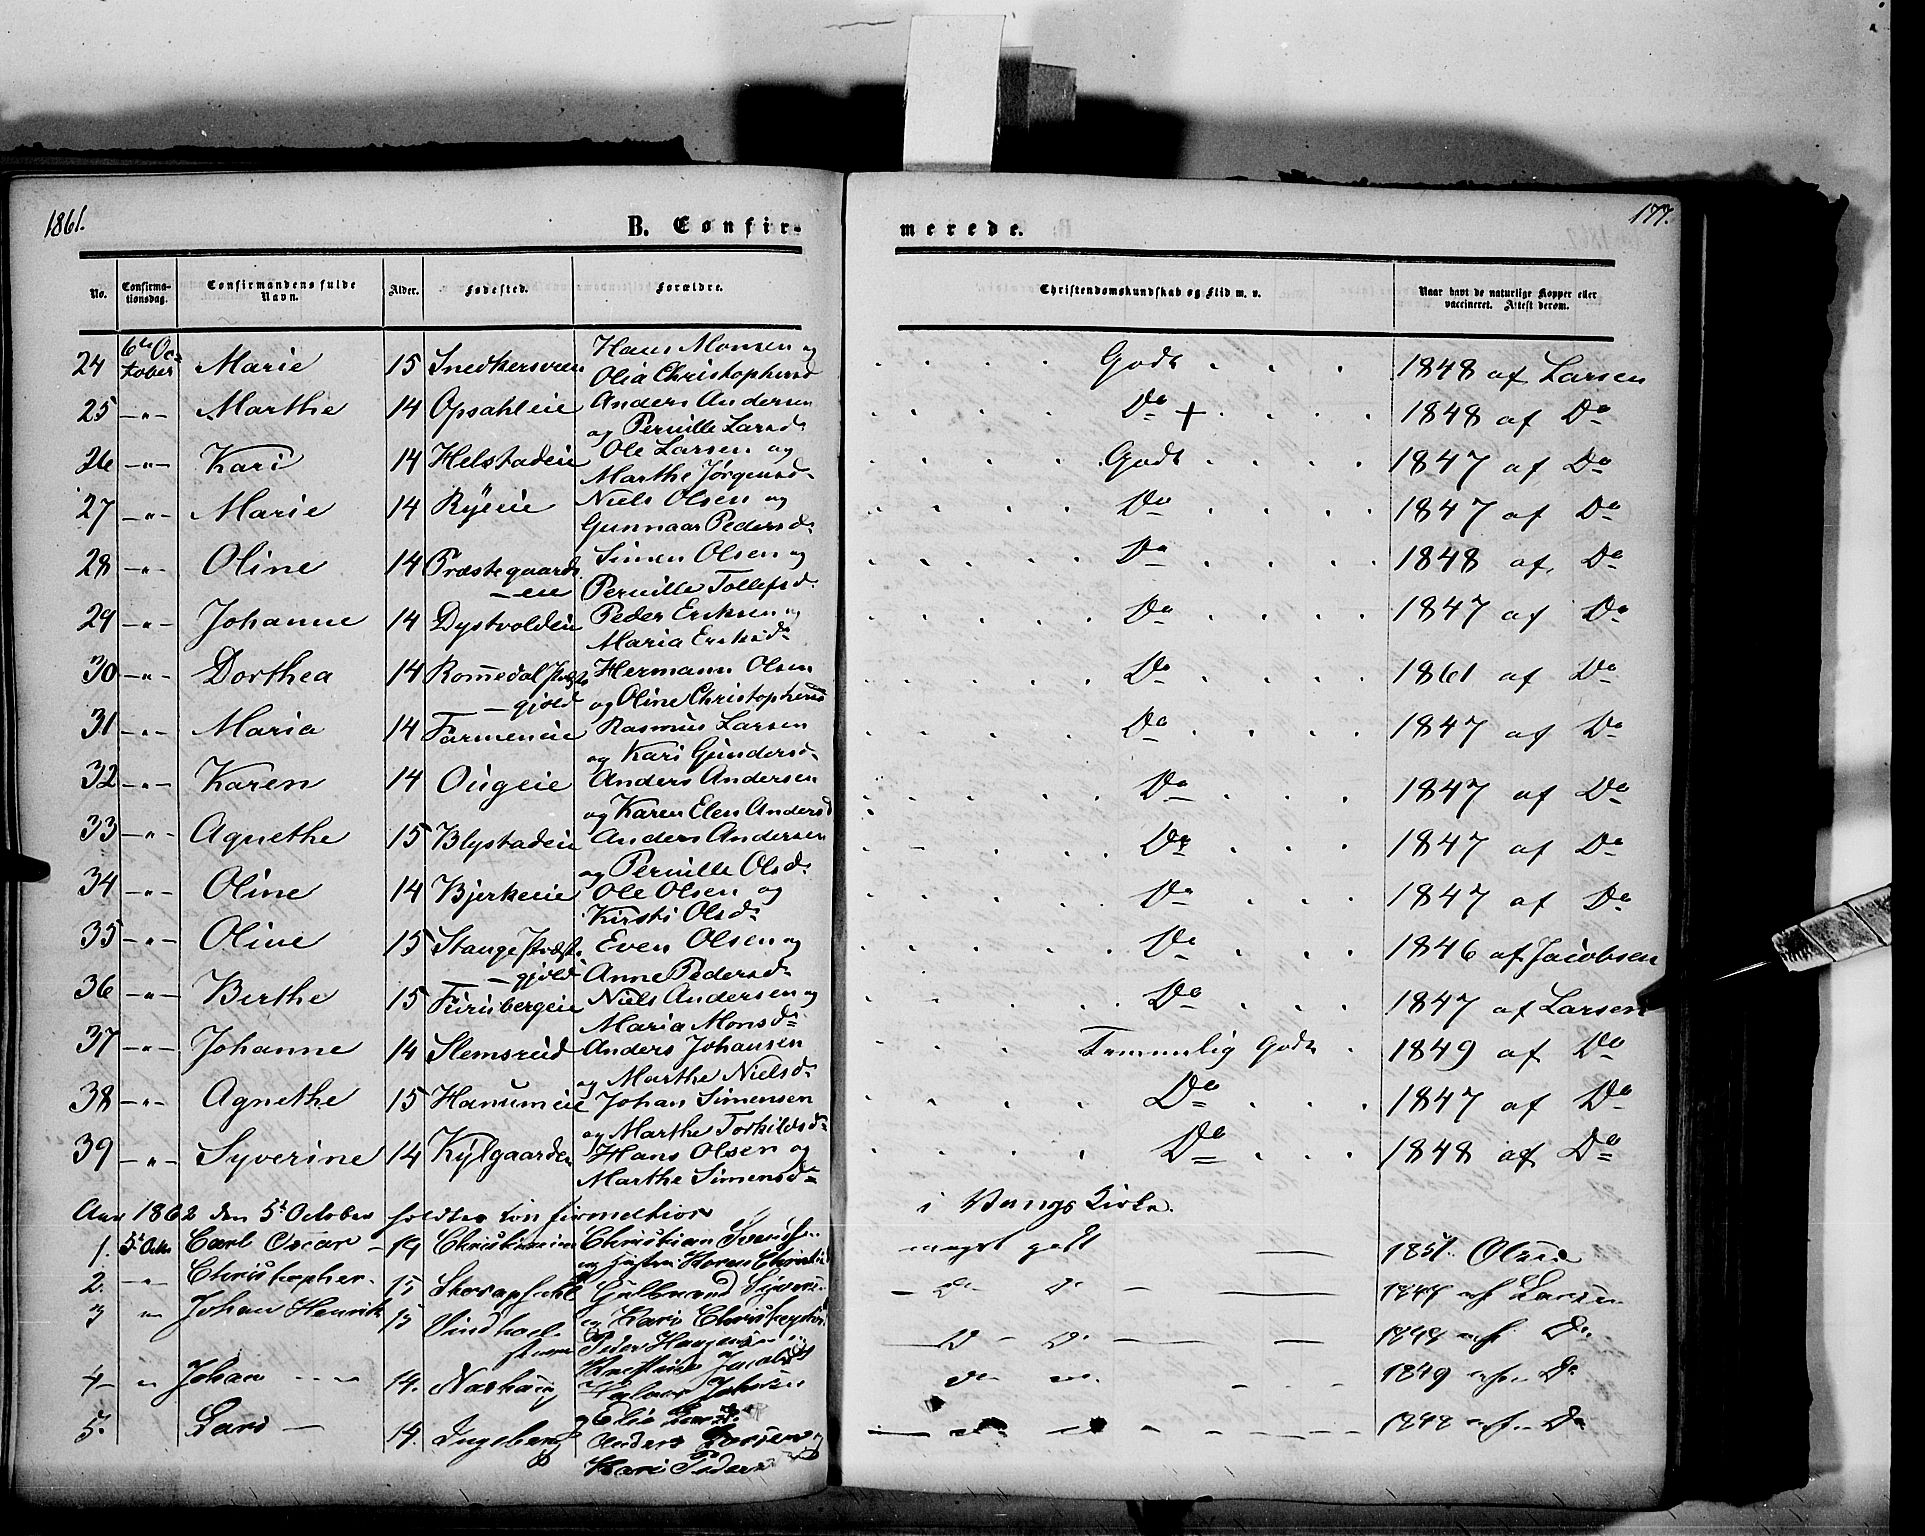 1861.
B. Confir-
merede.
177.
No.
Confirma-
tionsdag.
Confirmandens fulde
Navn.
Alder.
Fødested.
Forældre.
Christendomskundskab og Flid m. v.
Naar havt de naturlige Kopper eller
vaccineret. Attest derom.
24 6te Oc- Marie 15 Snedkersveen Hans Monsen og Godt 1848 af Larsen
tober Olia Christophersd
25 -"- Marthe 14 Opsahleie Anders Andersen Do + 1848 af Do
og Pernille Larsd.
26 -"- Kari 14 Helstadeie Ole Larsen og Godt 1847 af Do
Marthe Jørgensd.
27 -"- Marie 14 Ryeeie Niels Olsen og Do 1847 af Do
Gunnaar Pedersd.
28 -"- Oline 14 Præstegaards Simen Olsen og Do 1848 af Do
-eie Pernille Tollefsd.
29 -"- Johanne 14 Dystvoldeie Peder Eriksen og Do 1847 af Do
Maria Eriksd.
30 -"- Dorthea 14 Romedal Præste Hermann Olsen Do 1861 af Do
-gjeld og Oline Christophersd
31 -"- Maria 14 Farmeneie Rasmus Larsen Do 1847 af Do
og Kari Gundersd.
32 -"- Karen 14 Ougeie Anders Andersen Do 1847 af Do
og Karen Elen Andersd
33 -"- Agnethe 15 Blystadeie Anders Andersen Do 1847 af Do
og Pernille Olsd.
34 -"- Oline 14 Bjerkeeie Ole Olsen og Do 1847 af Do
Kirsti Olsd.
35 -"- Oline 15 Stange Præste Even Olsen og Do 1846 af Jacobsen
-gjeld Anne Pedersd.
36 -"- Berthe 15 Furubergeie Niels Andersen og Do 1847 af Larsen
Maria Monsd.
37 -"- Johanne 14 Slemsrud Anders Johansen Temmelig Godt 1849 af Do
og Marthe Nielsd.
38 -"- Agnethe 15 Hanumeie Johan Simensen Do 1847 af Do
og Marthe Torkildsd.
39 -"- Syverine 14 Kylgaarden Hans Olsen og Do 1848 af Do
Marthe Simensd.
Aar 1862 den 5te October holdtes Confirmation i Vangs Kirke.
1. 5te Octo Carl Oscar 14 Christian meget godt 1851. Olsen
2. -"- Christopher 15 Gulbrand Do Do af Larsen
og Kari
3 " Johan Henrik 15 Peder Do Do 1848 af Do
4 " Johan 14. Do Do 1849 af Do
5. Lars 14. Ingeberg Anders Larsen og Do Do 1848 af Do
Kari Pedersd